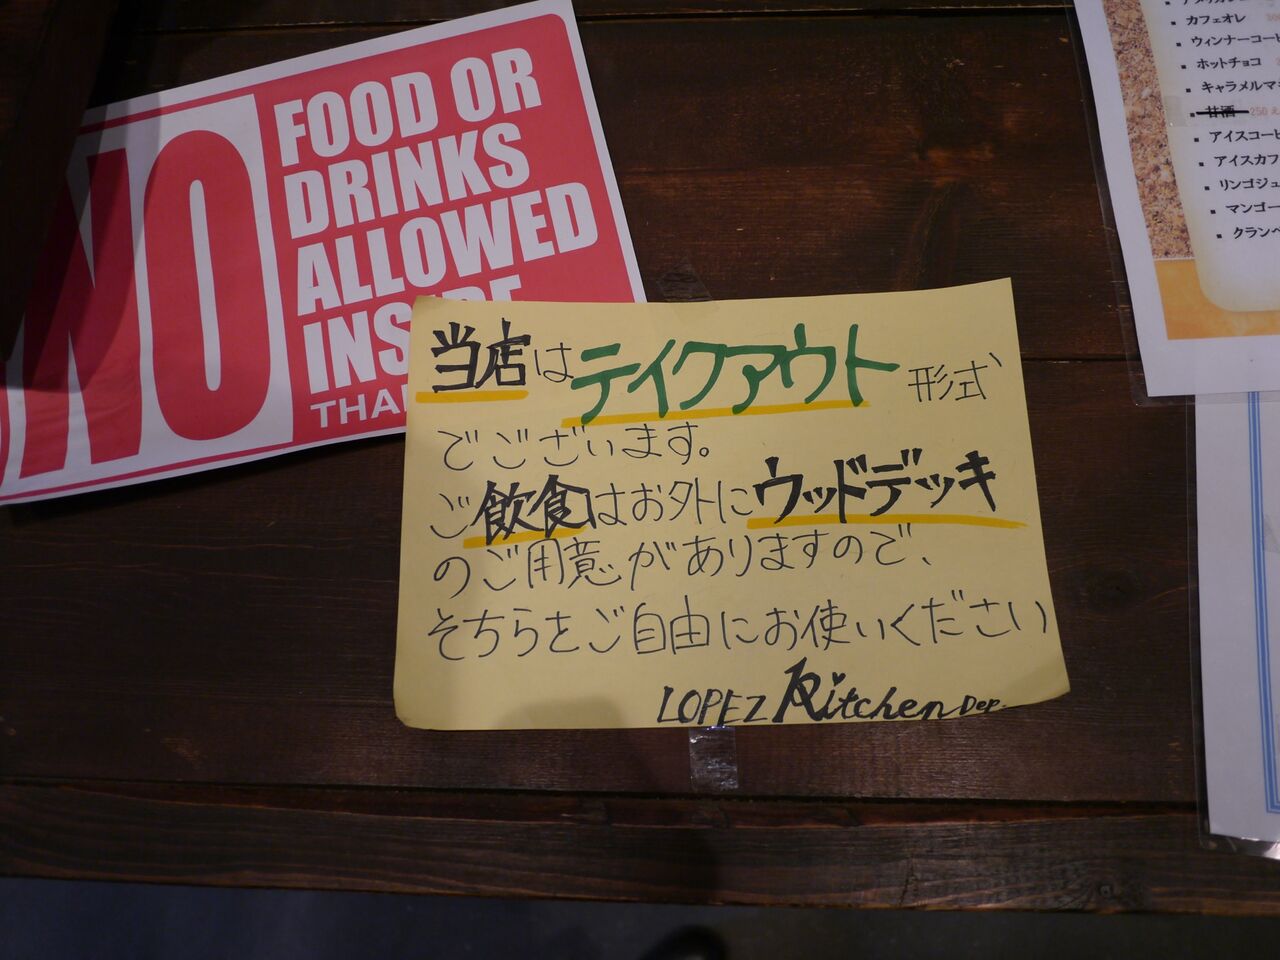 NO
FOOD OR
DRINKS
ALLOWED
当店はテイクアウト形式
でございます。
ご飲食はお外にウッドデッキ
のご用意がありますので、
そちらをご自由にお使いください
LOPEZ Kitchen Dep.
カフェオレ
ウィンナーコーヒ
ホットチョコ
キャラメルマ
甘酒 250
アイスコーヒ
アイスカフ
リンゴジュ
マンゴー
クランベ